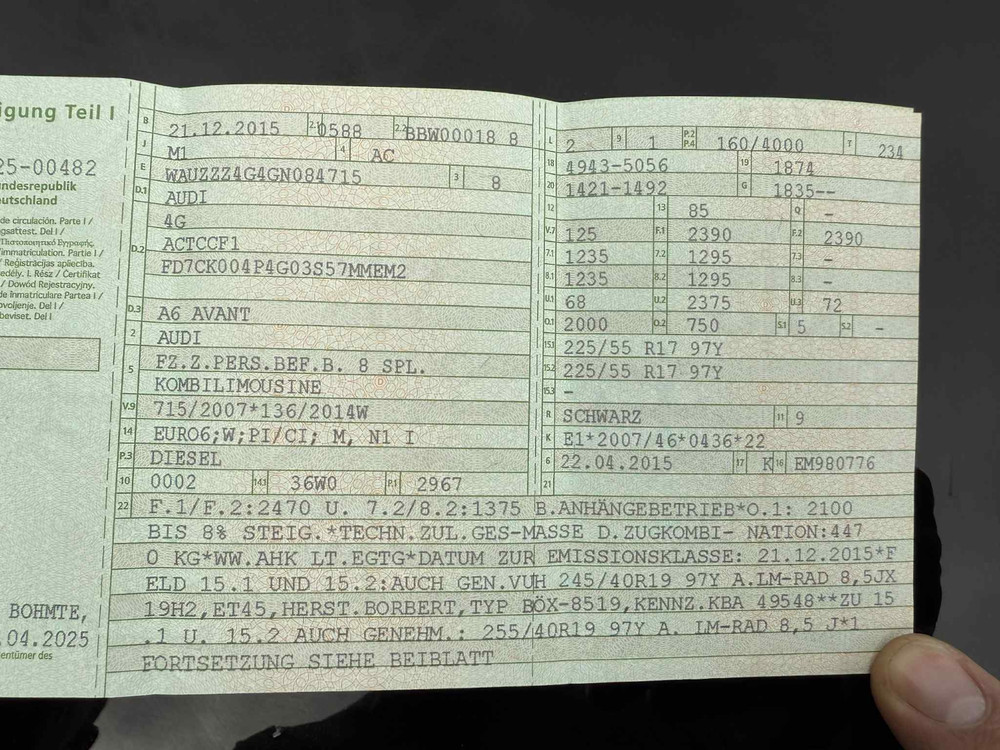 igung Teil I
25-00482
undesrepublik
eutschland
de circulación. Parte I /
gsattest. Del I /
Πιστοποιητικό Εγγραφής.
'immatriculation. Partie I /
/ Reģistrācijas apliecība.
edély. I. Rész / Ċertifikat
/ Dowód Rejestracyjny.
de înmatriculare Partea I /
ovoljenje. Del I /
beviset. Del I
BOHMTE,
.04.2025
entümer des
B 21.12.2015 2.1 0588 2.2 BBW00018 8
J M1 4 AC
E WAUZZZ4G4GN084715 3 8
D.1 AUDI
4G
D.2 ACTCCF1
FD7CK004P4G03S57MMEM2
D.3 A6 AVANT
2 AUDI
5 FZ.Z.PERS.BEF.B. 8 SPL.
KOMBILIMOUSINE
V.9 715/2007*136/2014W
14 EURO6;W;PI/CI; M, N1 I
P.3 DIESEL
10 0002 14.1 36W0 P.1 2967
L 2 9 1 P.2 P.4 160/4000 T 234
18 4943-5056 19 1874
20 1421-1492 G 1835--
12 13 85 Q -
V.7 125 F.1 2390 F.2 2390
7.1 1235 7.2 1295 7.3 -
8.1 1235 8.2 1295 8.3 -
U.1 68 U.2 2375 U.3 72
O.1 2000 O.2 750 S.1 5 S.2 -
15.1 225/55 R17 97Y
15.2 225/55 R17 97Y
15.3 -
R SCHWARZ 11 9
K E1*2007/46*0436*22
6 22.04.2015 17 K 16 EM980776
21
22 F.1/F.2:2470 U. 7.2/8.2:1375 B.ANHÄNGEBETRIEB*O.1: 2100
BIS 8% STEIG.*TECHN.ZUL.GES-MASSE D.ZUGKOMBI- NATION:447
0 KG*WW.AHK LT.EGTG*DATUM ZUR EMISSIONSKLASSE: 21.12.2015*F
ELD 15.1 UND 15.2:AUCH GEN.VUH 245/40R19 97Y A.LM-RAD 8,5JX
19H2,ET45,HERST.BORBERT,TYP BÖX-8519,KENNZ.KBA 49548**ZU 15
.1 U. 15.2 AUCH GENEHM.: 255/40R19 97Y A. LM-RAD 8,5 J*1
FORTSETZUNG SIEHE BEIBLATT